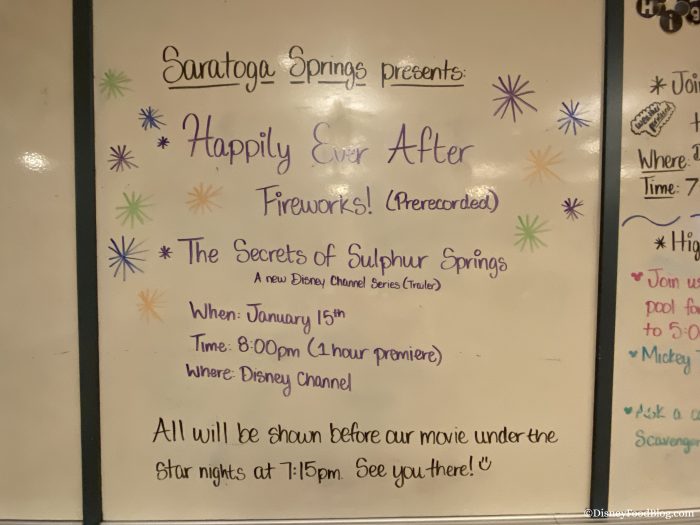 Saratoga Springs presents:
* Happily Ever After
Fireworks! (Prerecorded)
* The Secrets of Sulphur Springs
A new Disney Channel Series (Trailer)
When: January 15th
Time: 8:00pm (1 hour premiere)
Where: Disney Channel
All will be shown before our movie under the
Star nights at 7:15pm. See you there!
* Joi
Where:
Time: 7
* Hig
Join us
pool fo
to 5:0
Mickey
Ask a
Scavenger
©DisneyFoodBlog.com